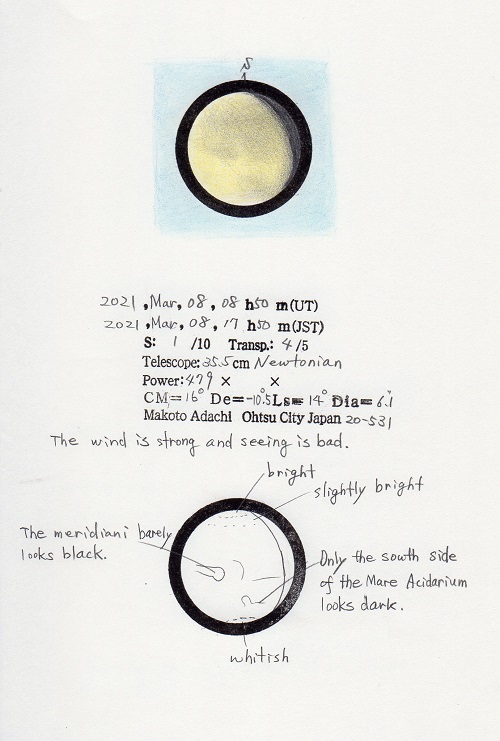 S
2021 ,Mar, 08 , 08 h50 m(UT)
2021 ,Mar, 08 , 17 h50 m(JST)
S: 1 /10 Transp.: 4/5
Telescope: 35.5cm Newtonian
Power: 479 × ×
CM=16° De=-10.5° Ls= 14° Dia= 6.1"
Makoto Adachi Ohtsu City Japan 20-531
The wind is strong and seeing is bad.
bright
slightly bright
The meridiani barely
looks black.
Only the south side
of the Mare Acidarium
looks dark.
whitish